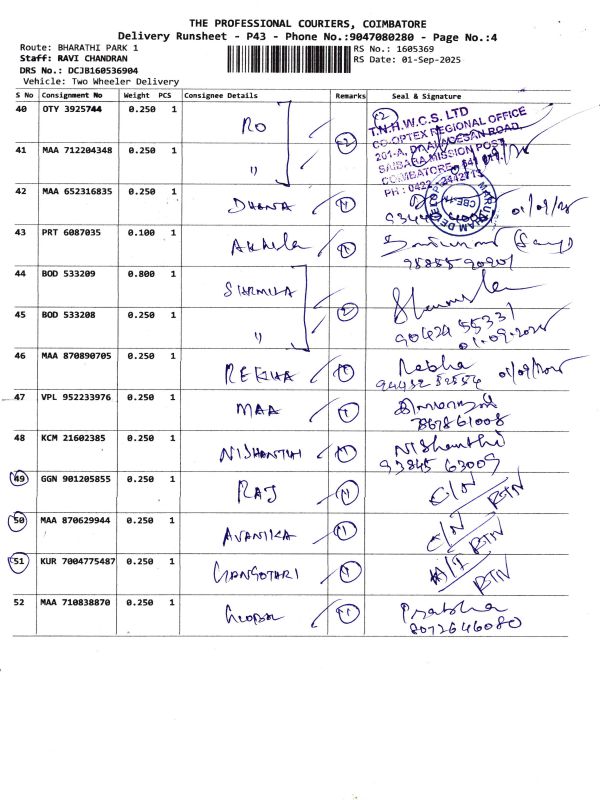 THE PROFESSIONAL COURIERS, COIMBATORE
Delivery Runsheet - P43 - Phone No.:9047080280 - Page No.:4
Route: BHARATHI PARK 1 RS No.: 1605369
Staff: RAVI CHANDRAN RS Date: 01-Sep-2025
DRS No.: DCJB160536904
Vehicle: Two Wheeler Delivery
S No Consignment No Weight PCS Consignee Details Remarks Seal & Signature
40 OTY 3925744 0.250 1 RO
T.N.H.W.C.S. LTD
CO-OPTEX REGIONAL OFFICE
SAIBABA MISSION POST
COIMBATORE
PH : 0422 - 2442713
41 MAA 712204348 0.250 1 "
42 MAA 652316835 0.250 1 DHANA
43 PRT 6087035 0.100 1 Akhila
44 BOD 533209 0.800 1 SHRMILA
45 BOD 533208 0.250 1 " 90424 55331
01.09.2025
46 MAA 870890705 0.250 1 REKHA Rekha
47 VPL 952233976 0.250 1 MAA
867861008
48 KCM 21602385 0.250 1 NISHANTHI NIShanthi
93845 63009
49 GGN 901205855 0.250 1 RAJ C/N RTN
50 MAA 870629944 0.250 1 AVANIKA C/N RTN
51 KUR 7004775487 0.250 1 GANGOTARI RTN
52 MAA 710838870 0.250 1 GLOBAL Prabha
8072646080